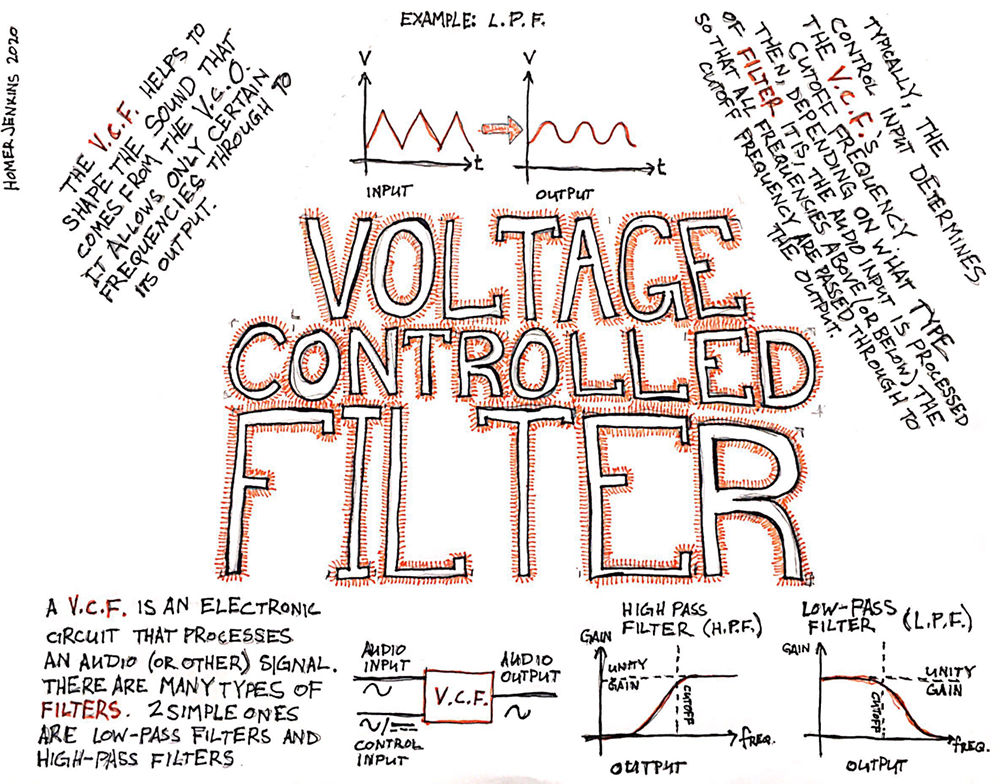 HOMER JENKINS 2020
THE V.C.F. HELPS TO
SHAPE THE SOUND THAT
COMES FROM THE V.C.O.
IT ALLOWS ONLY CERTAIN
FREQUENCIES THROUGH TO
ITS OUTPUT.
EXAMPLE: L.P.F.
V
t
INPUT
V
t
OUTPUT
TYPICALLY, THE
CONTROL INPUT DETERMINES
THE V.C.F.'S
CUTOFF FREQUENCY.
THEN, DEPENDING ON WHAT TYPE
OF FILTER IT IS, THE AUDIO INPUT IS PROCESSED
SO THAT ALL FREQUENCIES ABOVE (OR BELOW) THE
CUTOFF FREQUENCY ARE PASSED THROUGH TO
THE OUTPUT.
VOLTAGE
CONTROLLED
FILTER
A V.C.F. IS AN ELECTRONIC
CIRCUIT THAT PROCESSES
AN AUDIO (OR OTHER) SIGNAL.
THERE ARE MANY TYPES OF
FILTERS. 2 SIMPLE ONES
ARE LOW-PASS FILTERS AND
HIGH-PASS FILTERS.
AUDIO
INPUT
V.C.F.
AUDIO
OUTPUT
CONTROL
INPUT
HIGH PASS
FILTER (H.P.F.)
GAIN
UNITY
GAIN
CUTOFF
FREQ.
OUTPUT
LOW-PASS
FILTER (L.P.F.)
GAIN
UNITY
GAIN
CUTOFF
FREQ.
OUTPUT